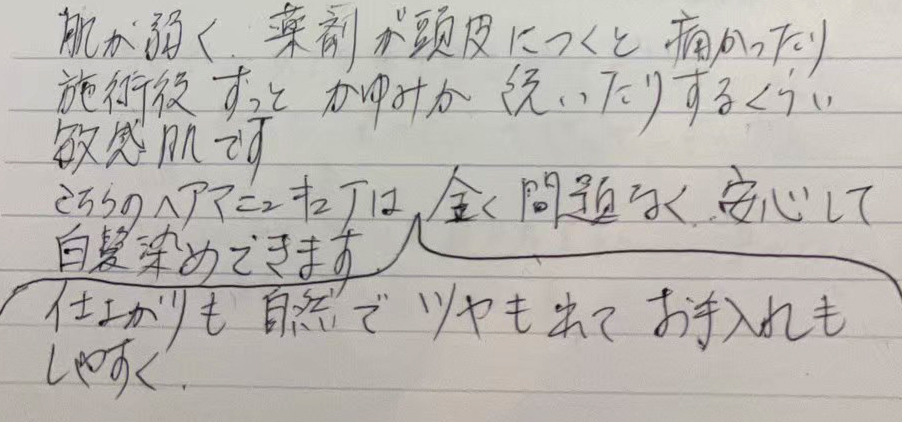 肌が弱く、薬剤が頭皮につくと痛かったり
施術後ずっとかゆみが続いたりするくらい
敏感肌です
こちらのヘアマニュキュアは全く問題なく、安心して
白髪染めできます
仕上がりも自然でツヤも出てお手入れも
しやすく、